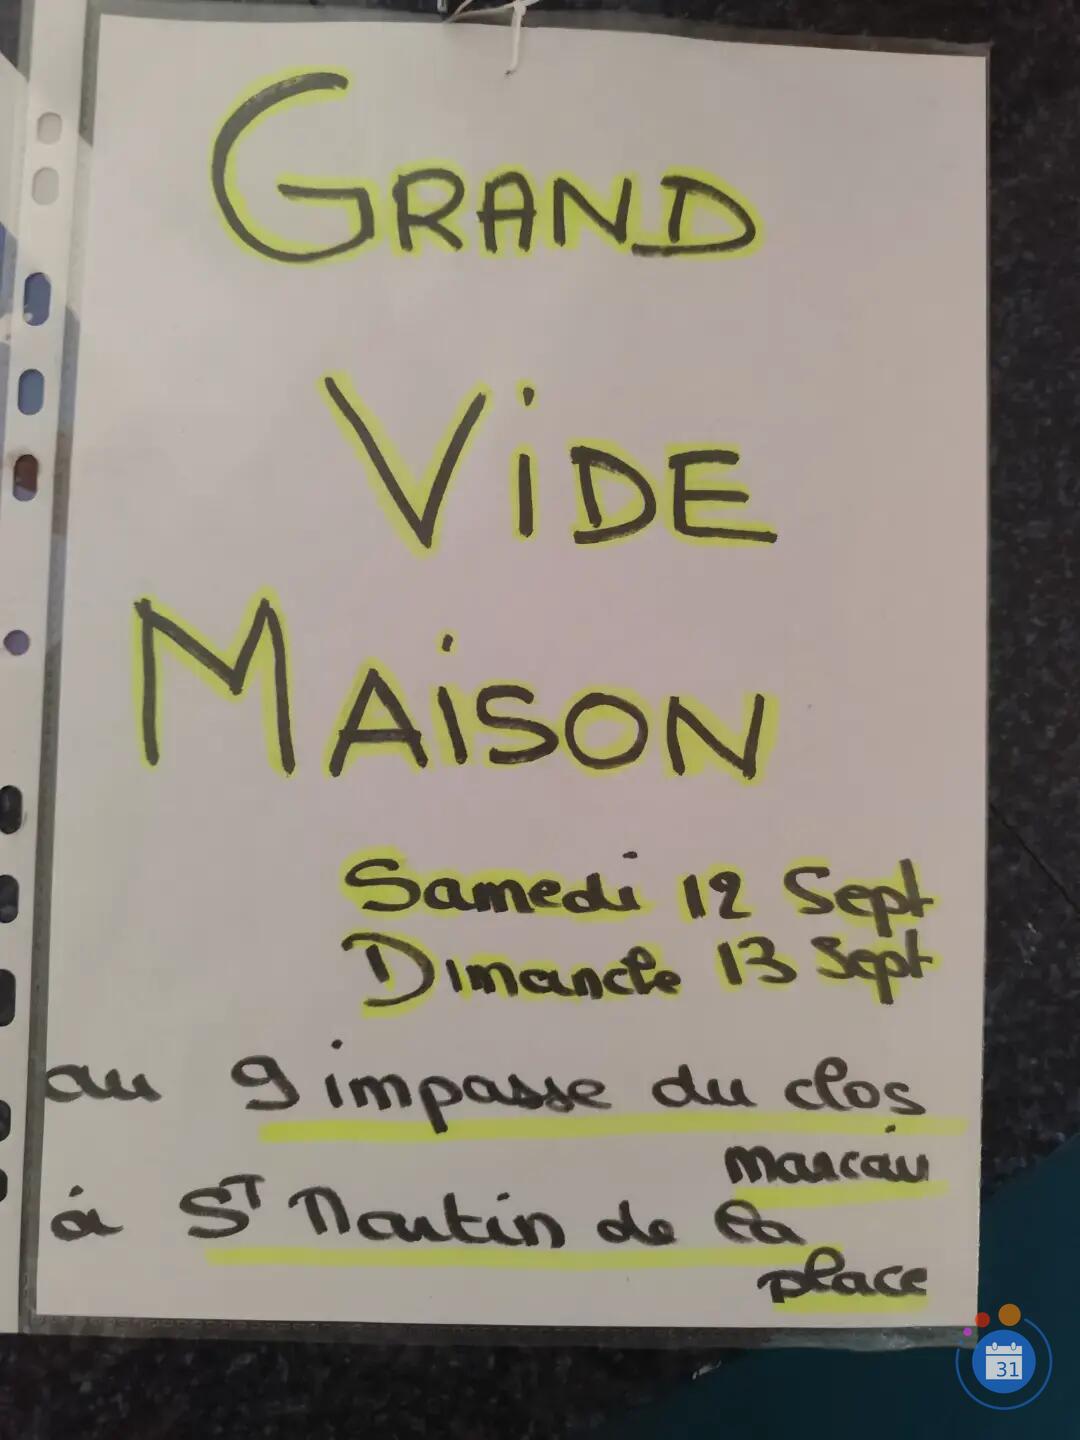 GRAND
ViDE
MAiSON
Samedi 12 Sept
Dimanche 13 Sept
au 9 impasse du clos
marcau
à Sᵀ Martin de la
place
31